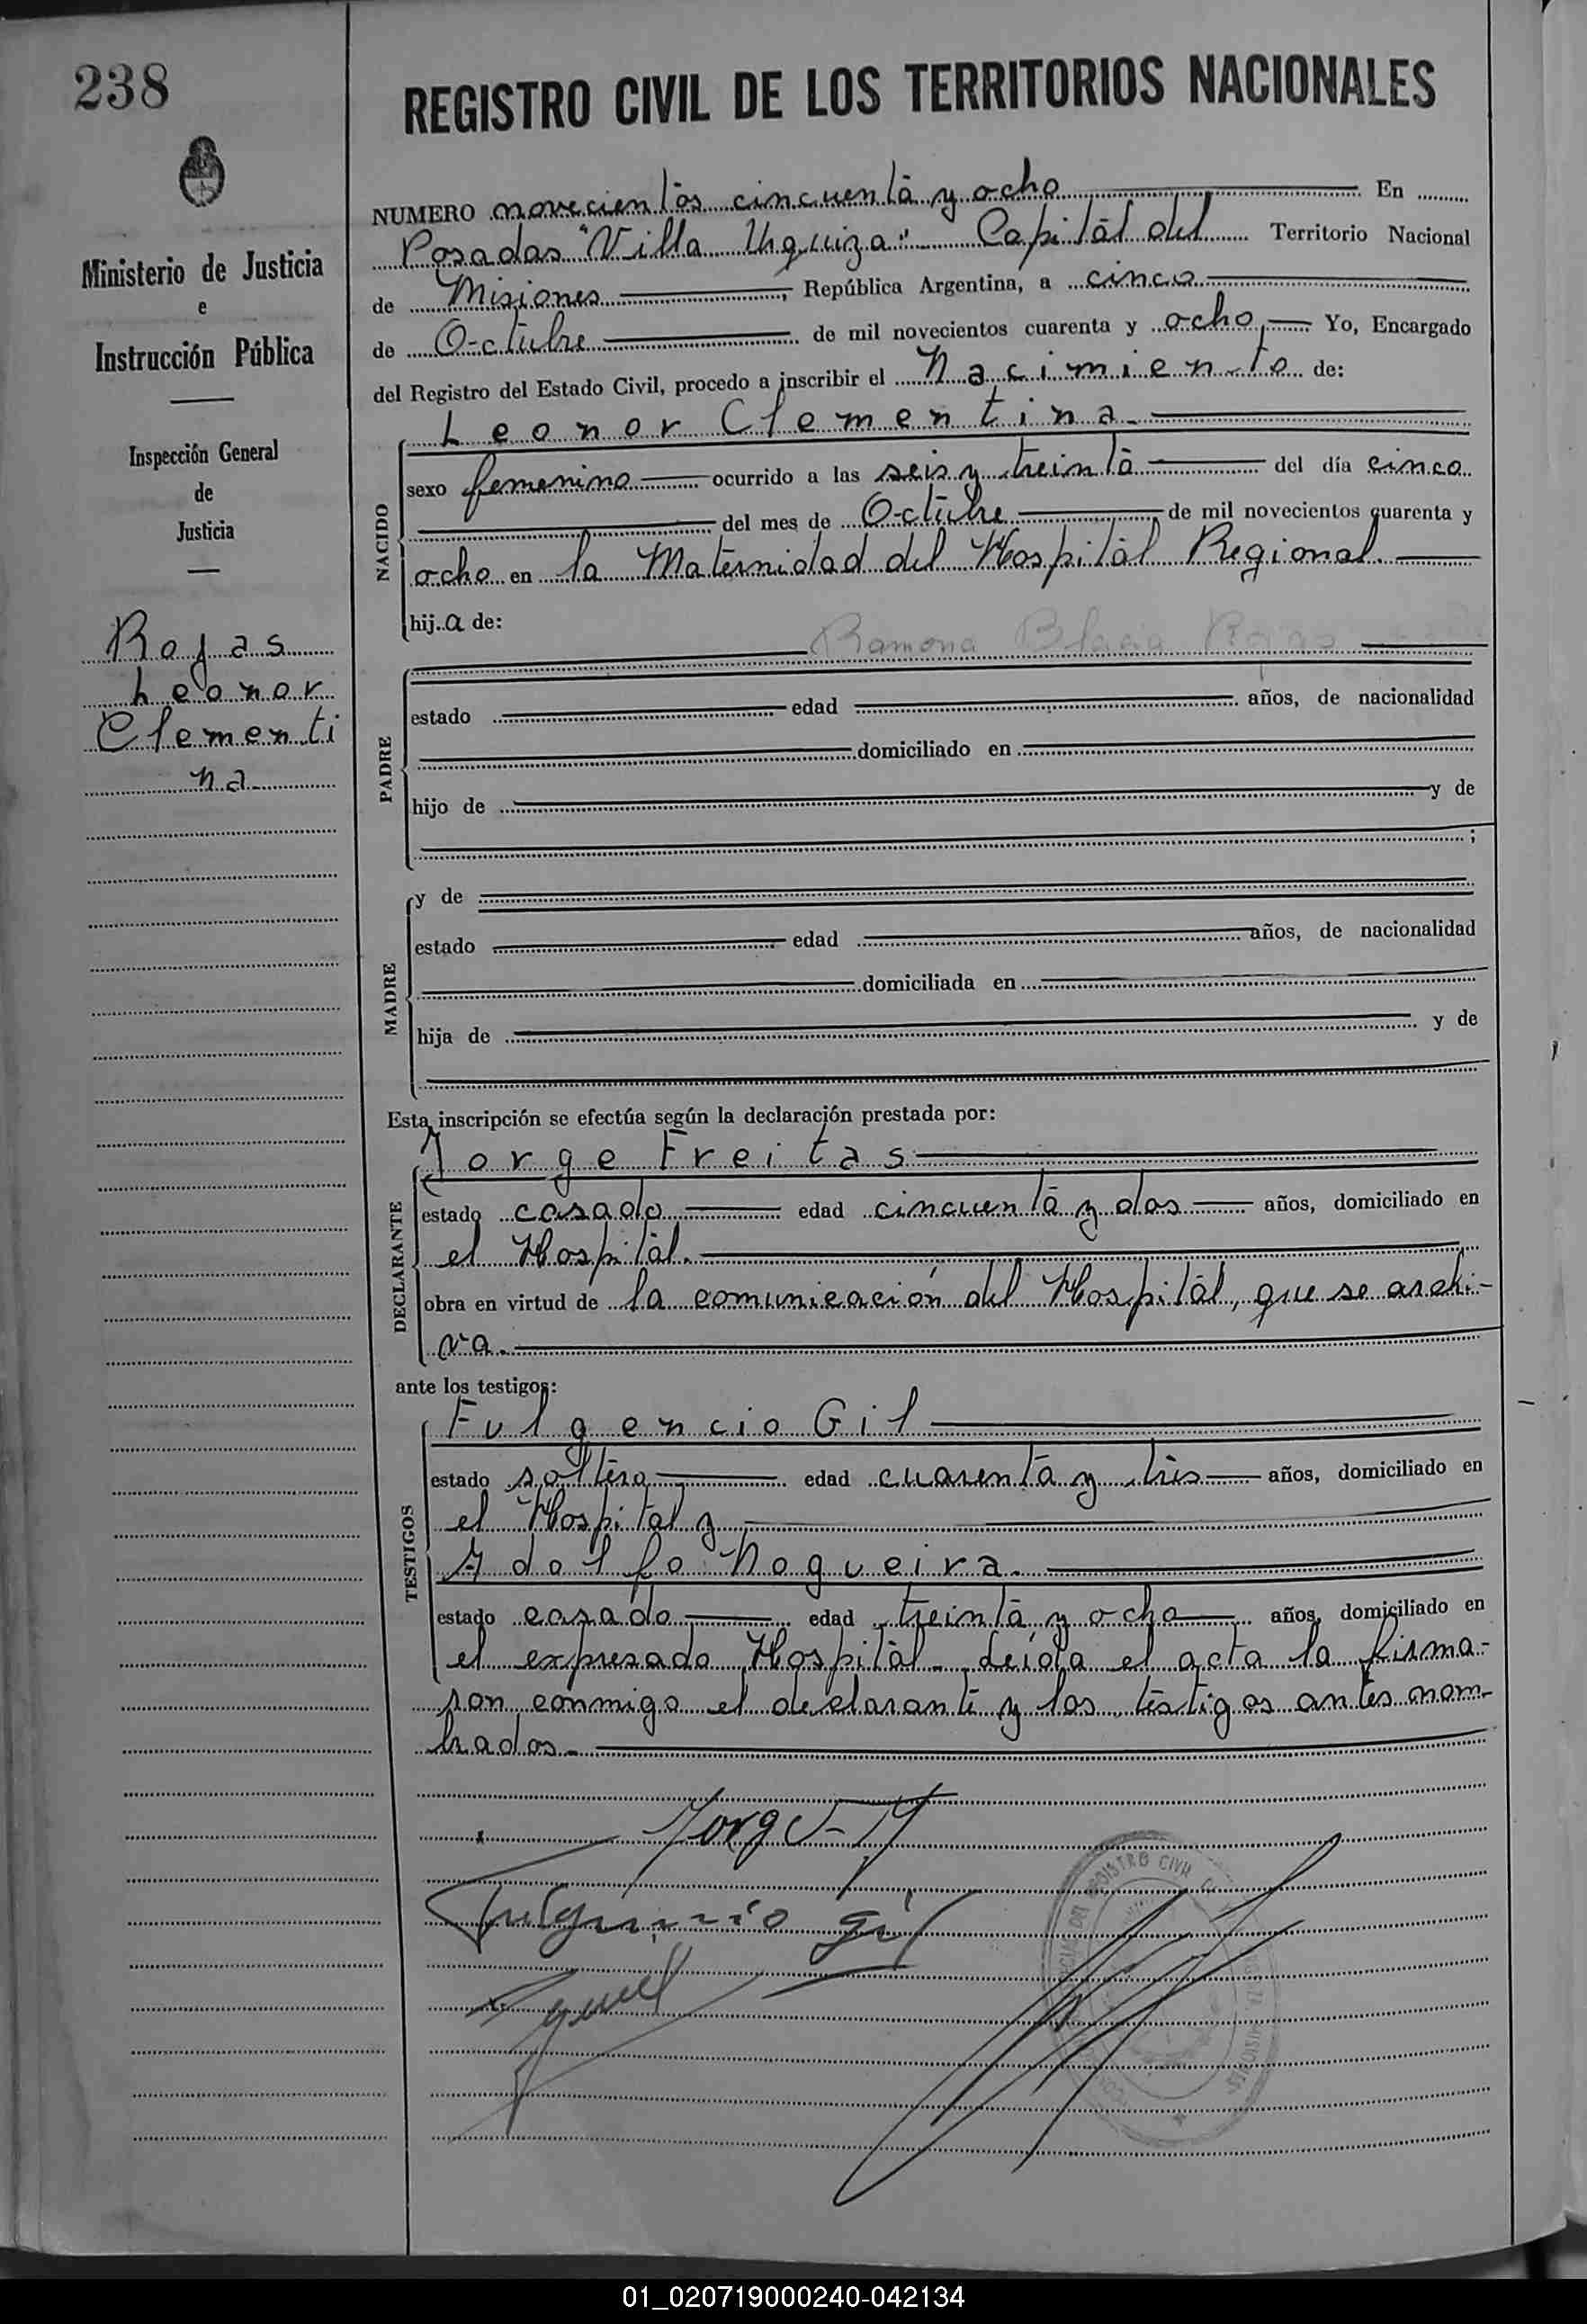 238
REGISTRO CIVIL DE LOS TERRITORIOS NACIONALES
Ministerio de Justicia
e
Instrucción Pública
Inspección General
de
Justicia
Rojas
Leonor
Clementi
na
NUMERO novecientos cincuenta y ocho En
Posadas "Villa Urquiza" Capital del Territorio Nacional
de Misiones, República Argentina, a cinco
de Octubre de mil novecientos cuarenta y ocho, Yo, Encargado
del Registro del Estado Civil, procedo a inscribir el Nacimiento de:
Leonor Clementina
NACIDO
sexo femenino ocurrido a las seis y treinta del día cinco
del mes de Octubre de mil novecientos cuarenta y
ocho en la Maternidad del Hospital Regional.
hija de:
Ramona Blasia Rojas
PADRE
estado edad años, de nacionalidad
domiciliado en
hijo de y de
;
MADRE
y de
estado edad años, de nacionalidad
domiciliada en
hija de y de
Esta inscripción se efectúa según la declaración prestada por:
Jorge Freitas
DECLARANTE
estado casado edad cincuenta y dos años, domiciliado en
el Hospital.
obra en virtud de la comunicación del Hospital, que se archi-
va.
ante los testigos:
Fulgencio Gil
TESTIGOS
estado soltero edad cuarenta y tres años, domiciliado en
el Hospital y
Adolfo Nogueira.
estado casado edad treinta y ocho años, domiciliado en
el expresado Hospital. Leída el acta la firma-
ron conmigo el declarante y los testigos antes nom-
brados.
Jorge
Fulgencio Gil
REGISTRO CIVIL
01_020719000240-042134